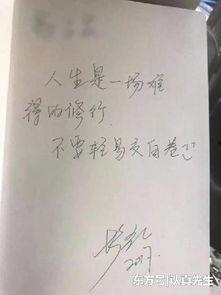 人生是一场难
得的修行
不要轻易交白卷
2017.
东方号@认真先生